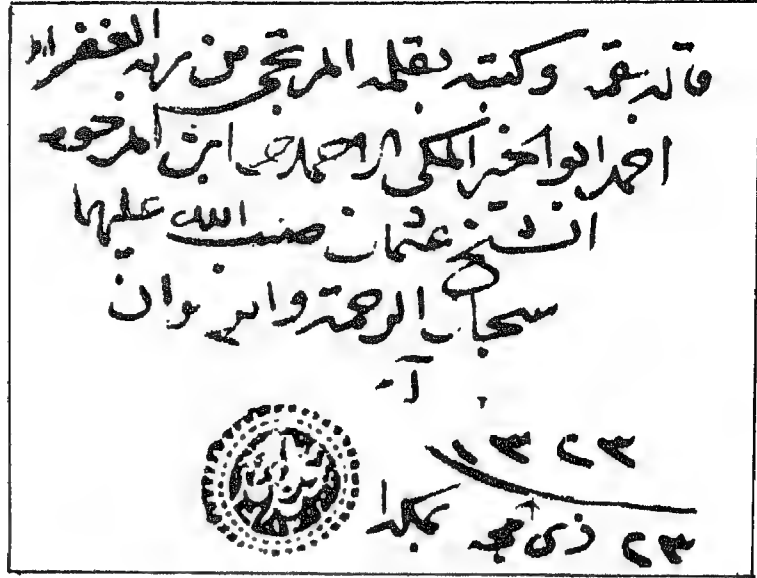 قاله بفمه وكتبه بقلمه المرتجى من ربه الغفران
احمد ابو الخير المكي الاحمدي ابن المرحوم
الشيخ عثمان صب الله عليهما
سحاب الرحمة والرضوان
آمين
١٣٢٣
٢٣ ذى حجه